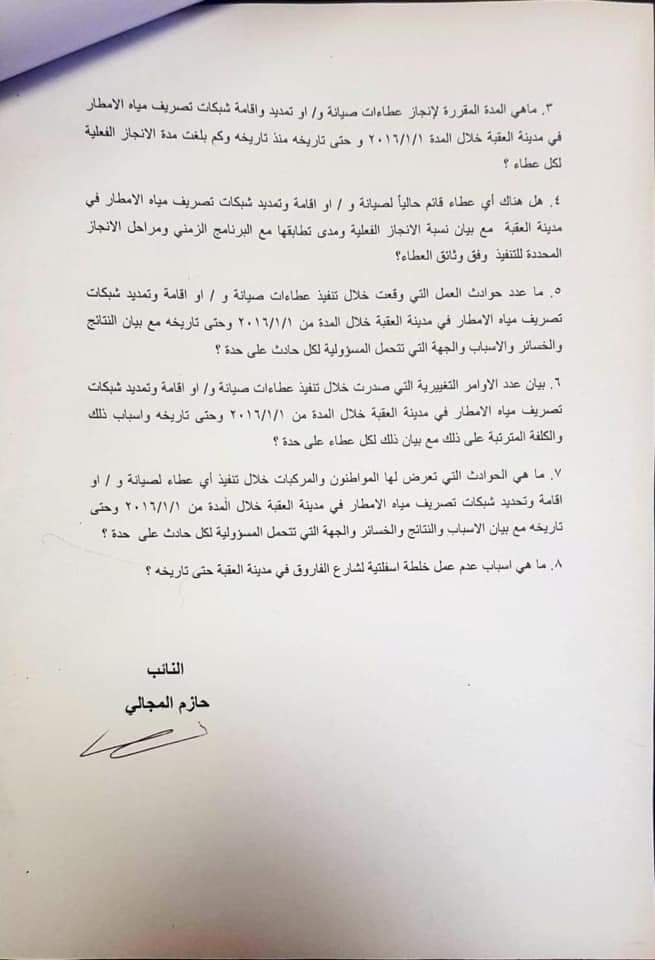 ٣. ماهي المدة المقررة لإنجاز عطاءات صيانة و/ او تمديد واقامة شبكات تصريف مياه الامطار
في مدينة العقبة خلال المدة ٢٠١٦/١/١ و حتى تاريخه منذ تاريخه وكم بلغت مدة الانجاز الفعلية
لكل عطاء ؟
٤. هل هناك أي عطاء قائم حالياً لصيانة و / او اقامة وتمديد شبكات تصريف مياه الامطار في
مدينة العقبة مع بيان نسبة الانجاز الفعلية ومدى تطابقها مع البرنامج الزمني ومراحل الانجاز
المحددة للتنفيذ وفق وثائق العطاء؟
٥. ما عدد حوادث العمل التي وقعت خلال تنفيذ عطاءات صيانة و / او اقامة وتمديد شبكات
تصريف مياه الامطار في مدينة العقبة خلال المدة من ٢٠١٦/١/١ وحتى تاريخه مع بيان النتائج
والخسائر والاسباب والجهة التي تتحمل المسؤولية لكل حادث على حدة ؟
٦. بيان عدد الاوامر التغييرية التي صدرت خلال تنفيذ عطاءات صيانة و/ او اقامة وتمديد شبكات
تصريف مياه الامطار في مدينة العقبة خلال المدة من ٢٠١٦/١/١ وحتى تاريخه واسباب ذلك
والكلفة المترتبة على ذلك مع بيان ذلك لكل عطاء على حدة ؟
٧. ما هي الحوادث التي تعرض لها المواطنون والمركبات خلال تنفيذ أي عطاء لصيانة و / او
اقامة وتحديد شبكات تصريف مياه الامطار في مدينة العقبة خلال المدة من ٢٠١٦/١/١ وحتى
تاريخه مع بيان الاسباب والنتائج والخسائر والجهة التي تتحمل المسؤولية لكل حادث على حدة ؟
٨. ما هي اسباب عدم عمل خلطة اسفلتية لشارع الفاروق في مدينة العقبة حتى تاريخه ؟
النائب
حازم المجالي